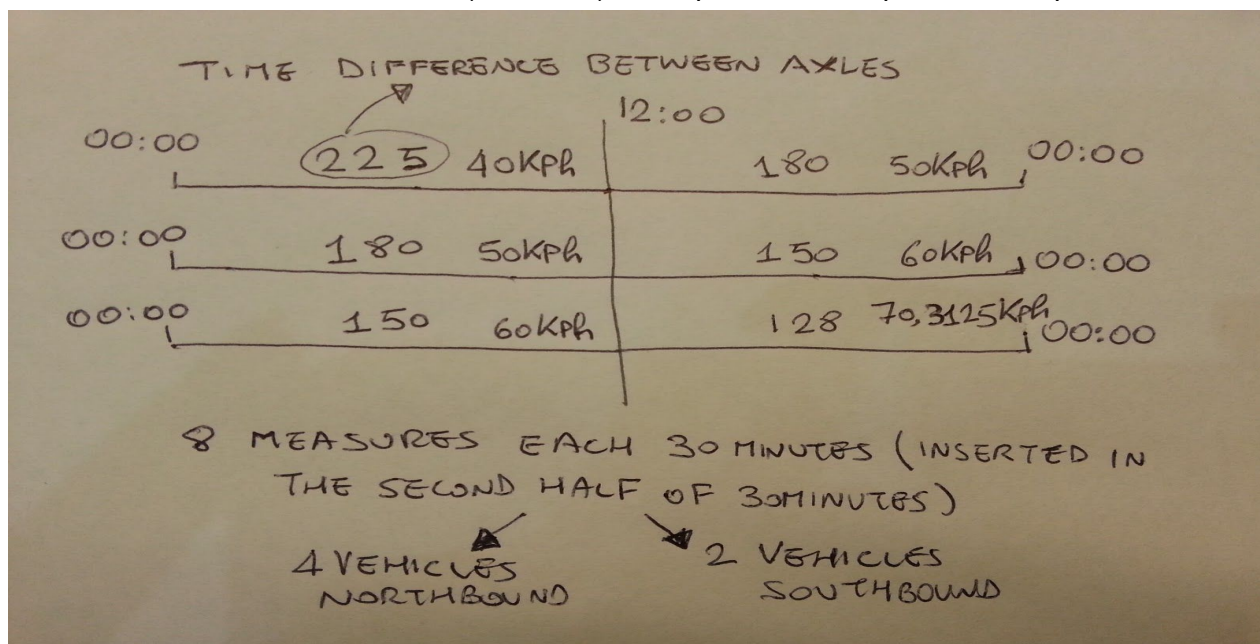 TIME DIFFERENCE BETWEEN AXLES
12:00
00:00 225 40Kph 180 50Kph 00:00
00:00 180 50Kph 150 60Kph 00:00
00:00 150 60Kph 128 70,3125Kph 00:00
8 MEASURES EACH 30 MINUTES (INSERTED IN
THE SECOND HALF OF 30MINUTES)
4 VEHICLES 2 VEHICLES
NORTHBOUND SOUTHBOUND